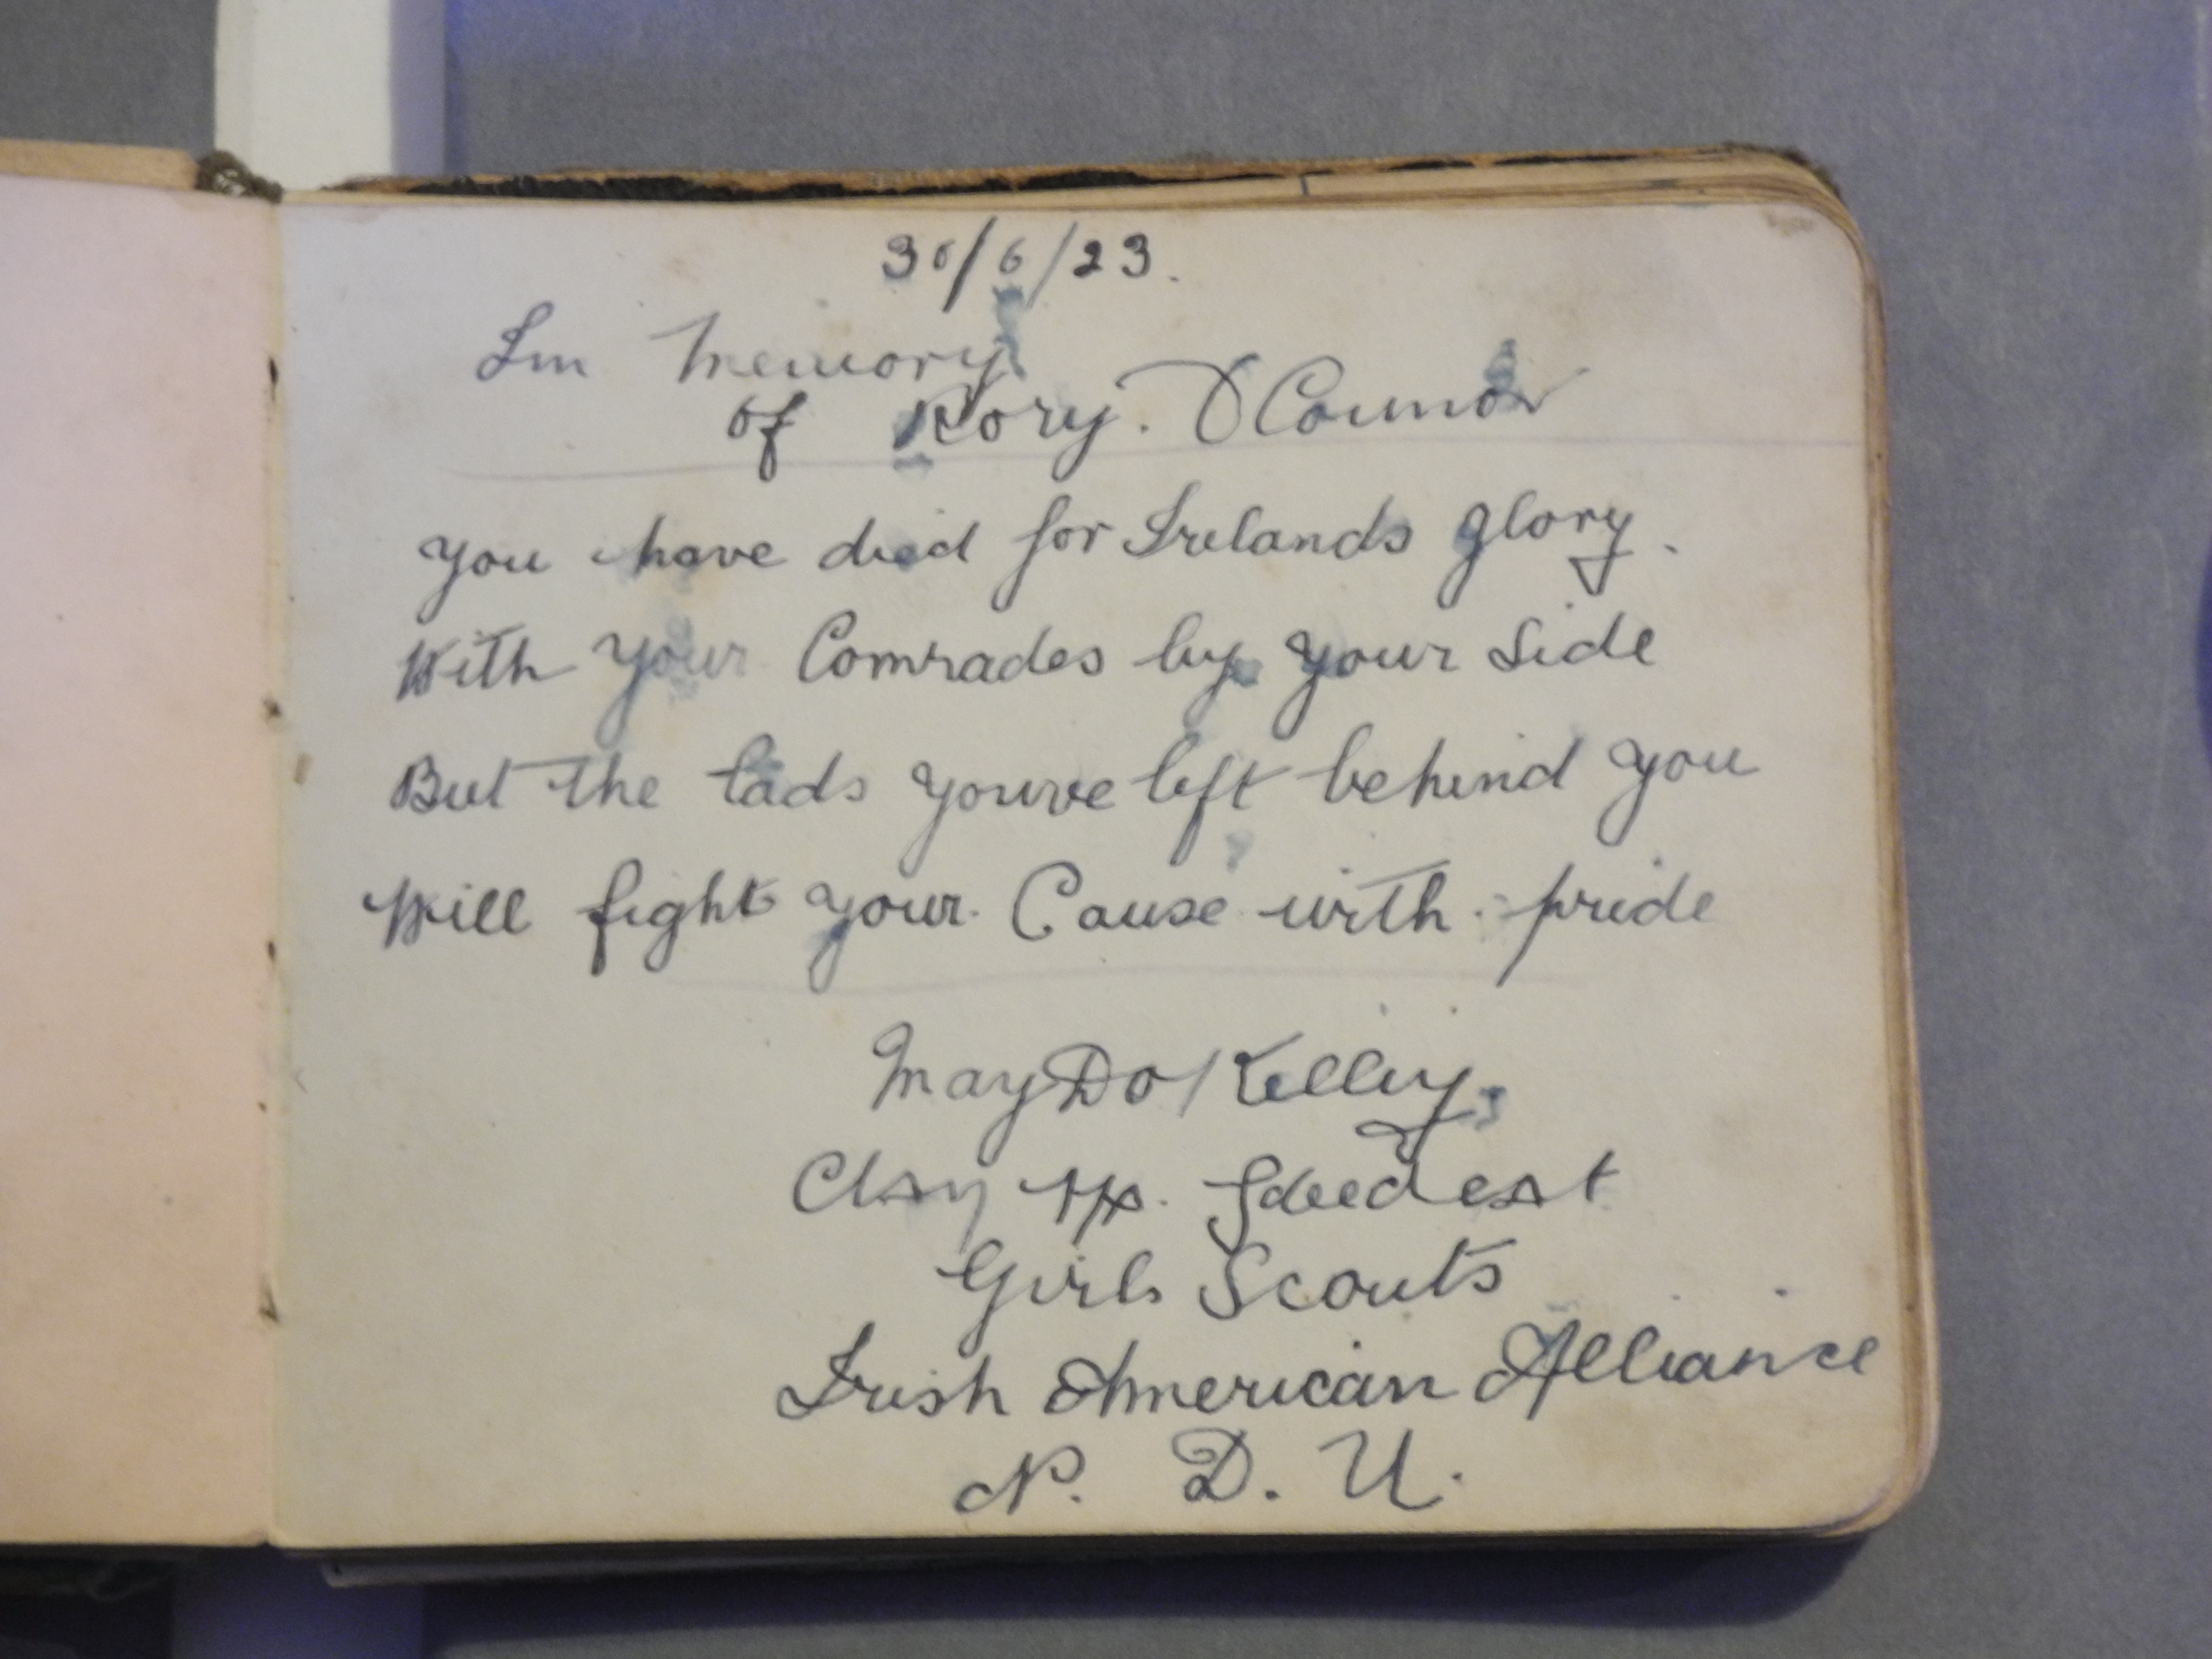 30/6/23.
In Memory
of Rory. O Connor
you have died for Irelands glory.
With your Comrades by your Side
But the lads youve left behind you
Will fight your Cause with pride
May Do Kelly
Girls Scouts
Irish American Alliance
N. D. U.